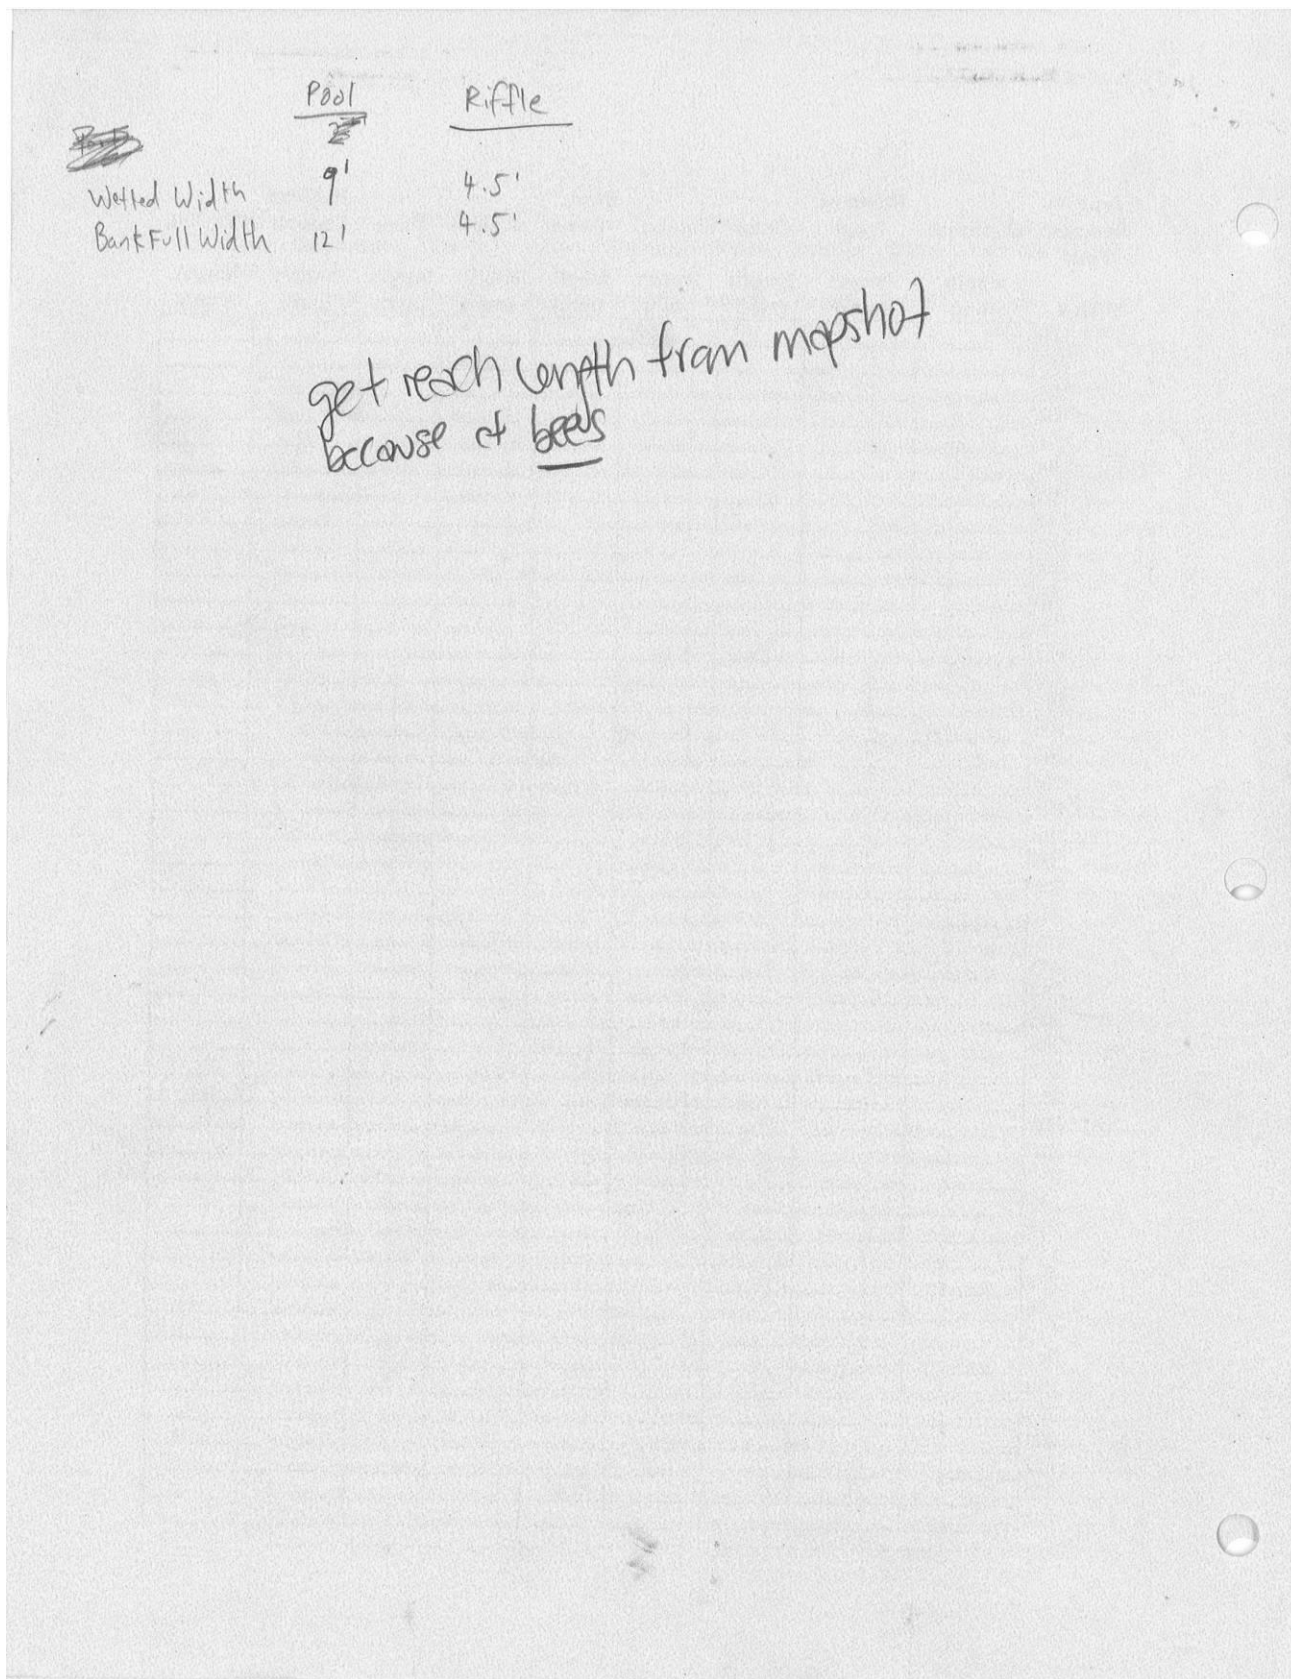 Pool Riffle
Wetted Width 9' 4.5'
Bank Full Width 12' 4.5'
get reach length from mapshot
because of bees